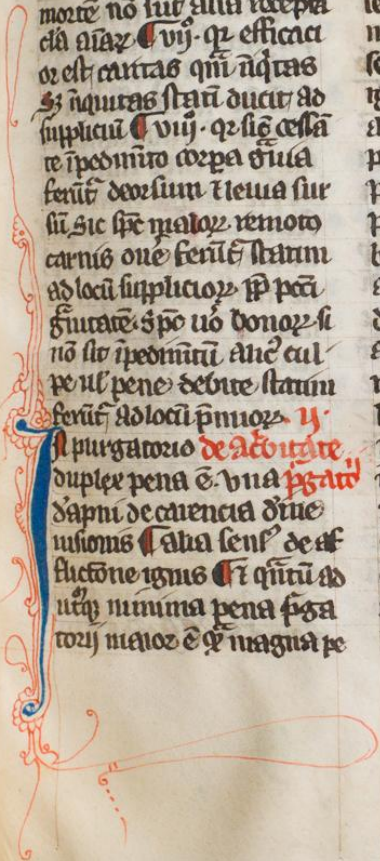 morte no sut alia recepta
cla aiaꝝ ¶ vijº · qr efficaci
or est caritas qm iiqtas
Sz iniquitas statī ducit ad
suppliciū ¶ viijº · qr sic cessā
te īpedimto corpa gͣuia
ferūt deorsum ⁊ leuia sur
sū sic spc maloꝝ remoto
carnis onē ferūt statim
ad locū supplicioꝝ ꝓ pcti
gͣuitate · Spc uº bonoꝝ si
nō sit īpedimtū alic cul
pe ul pene debite statim
ferūt ad locū pmioꝝ · ij ·
In purgatorio de acbitate
duplex pena ē · vna pgatorij
dāpni de carencia diuie
uisionis ¶ alia sensꝰ de af
flictōne ignis ¶ ⁊ qntū ad
utqꝫ minima pena pga
torij maior ē qͣ magna pe